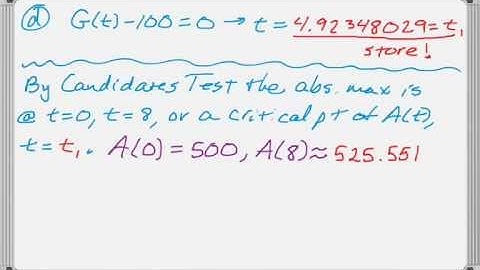 ⓓ G(t)-100=0 → t = 4.92348029=t₁
store!
By Candidates Test the abs. max is
@ t=0, t=8, or a critical pt of A(t),
t=t₁. A(0)=500, A(8)≈525.551